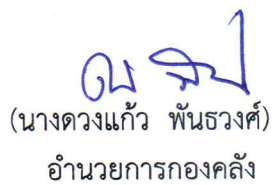 (นางดวงแก้ว พันธวงศ์)
อำนวยการกองคลัง